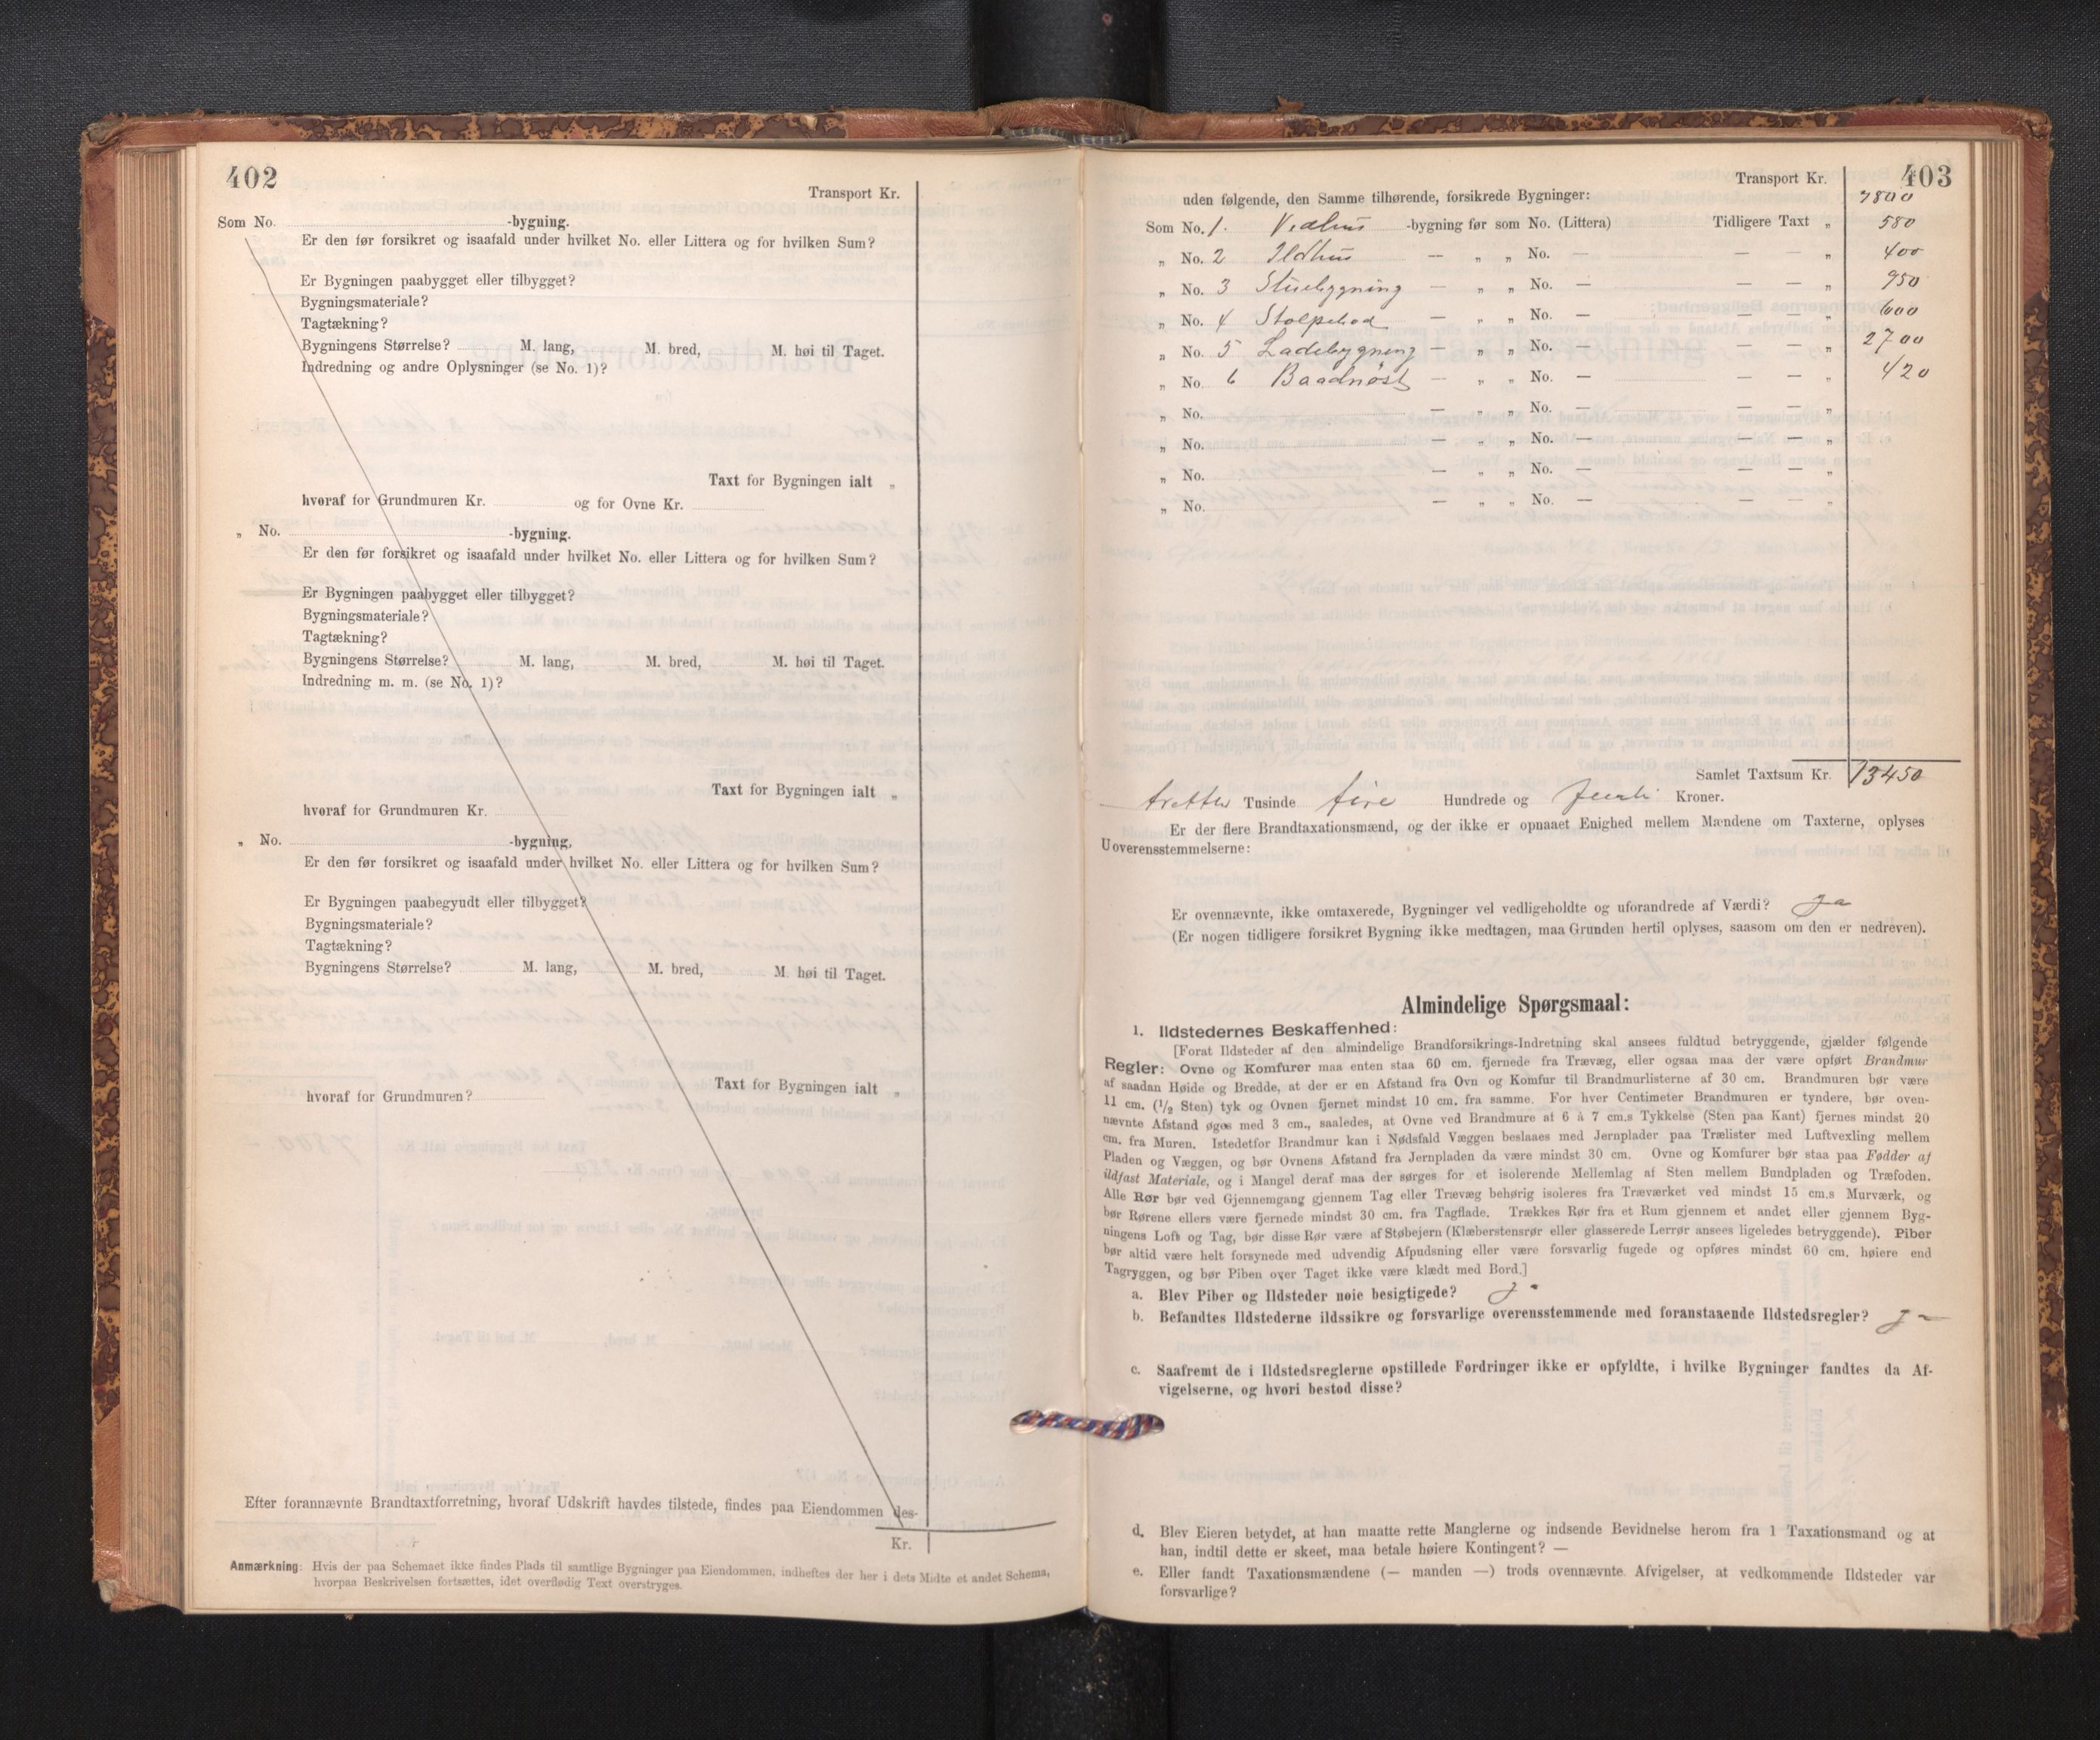 402
Transport Kr.
Som No. -bygning.
Er den før forsikret og isaafald under hvilket No. eller Littera og for hvilken Sum?
Er Bygningen paabygget eller tilbygget?
Bygningsmateriale?
Tagtækning?
Bygningens Størrelse? M. lang, M. bred, M. høi til Taget.
Indredning og andre Oplysninger (se No. 1)?
Taxt for Bygningen ialt „
hvoraf for Grundmuren Kr. og for Ovne Kr.
„ No. -bygning.
Er den før forsikret og isaafald under hvilket No. eller Littera og for hvilken Sum?
Er Bygningen paabygget eller tilbygget?
Bygningsmateriale?
Tagtækning?
Bygningens Størrelse? M. lang, M. bred, M. høi til Taget.
Indredning m. m. (se No. 1)?
Taxt for Bygningen ialt „
hvoraf for Grundmuren Kr.
„ No. -bygning,
Er den før forsikret og isaafald under hvilket No. eller Littera og for hvilken Sum?
Er Bygningen paabegyndt eller tilbygget?
Bygningsmateriale?
Tagtækning?
Bygningens Størrelse? M. lang, M. bred, M. høi til Taget.
Taxt for Bygningen ialt „
hvoraf for Grundmuren?
Efter forannævnte Brandtaxtforretning, hvoraf Udskrift havdes tilstede, findes paa Eiendommen des-
Kr.
Anmærkning: Hvis der paa Schemaet ikke findes Plads til samtlige Bygninger paa Eiendommen, indheftes der her i dets Midte et andet Schema,
hvorpaa Beskrivelsen fortsættes, idet overflødig Text overstryges.
403
Transport Kr. 7800
uden følgende, den Samme tilhørende, forsikrede Bygninger:
Som No. 1. Vedhus -bygning før som No. (Littera) Tidligere Taxt „ 580
„ No. 2 Ildhus — „ „ No. — — — „ 400
„ No. 3 Stuebygning — „ „ No. — — — „ 950
„ No. 4 Stolpebod — „ „ No. — — — „ 600
„ No. 5 Ladebygning — „ „ No. — — — „ 2700
„ No. 6 Baadnøst — „ „ No. — — — „ 420
„ No. — „ „ No. — — — „
„ No. — „ „ No. — — — „
„ No. — „ „ No. — — — „
„ No. — „ „ No. — — — „
Samlet Taxtsum Kr. 13450
tretten Tusinde fire Hundrede og femti Kroner.
Er der flere Brandtaxationsmænd, og der ikke er opnaaet Enighed mellem Mændene om Taxterne, oplyses
Uoverensstemmelserne:
Er ovennævnte, ikke omtaxerede, Bygninger vel vedligeholdte og uforandrede af Værdi? ja
(Er nogen tidligere forsikret Bygning ikke medtagen, maa Grunden hertil oplyses, saasom om den er nedreven).
Almindelige Spørgsmaal:
1. Ildstedernes Beskaffenhed:
[Forat Ildsteder af den almindelige Brandforsikrings-Indretning skal ansees fuldtud betryggende, gjælder følgende
Regler: Ovne og Komfurer maa enten staa 60 cm. fjernede fra Trævæg, eller ogsaa maa der være opført Brandmur
af saadan Høide og Bredde, at der er en Afstand fra Ovn og Komfur til Brandmurlisterne af 30 cm. Brandmuren bør være
11 cm. (1/2 Sten) tyk og Ovnen fjernet mindst 10 cm. fra samme. For hver Centimeter Brandmuren er tyndere, bør oven-
nævnte Afstand øges med 3 cm., saaledes, at Ovne ved Brandmure at 6 à 7 cm.s Tykkelse (Sten paa Kant) fjernes mindst 20
cm. fra Muren. Istedetfor Brandmur kan i Nødsfald Væggen beslaaes med Jernplader paa Trælister med Luftvexling mellem
Pladen og Væggen, og bør Ovnens Afstand fra Jernpladen da være mindst 30 cm. Ovne og Komfurer bør staa paa Fødder af
ildfast Materiale, og i Mangel deraf maa der sørges for et isolerende Mellemlag af Sten mellem Bundpladen og Træfoden.
Alle Rør bør ved Gjennemgang gjennem Tag eller Trævæg behørig isoleres fra Træværket ved mindst 15 cm.s Murværk, og
bør Rørene ellers være fjernede mindst 30 cm. fra Tagflade. Trækkes Rør fra et Rum gjennem et andet eller gjennem Byg-
ningens Loft og Tag, bør disse Rør være af Støbejern (Klæberstensrør eller glasserede Lerrør ansees ligeledes betryggende). Piber
bør altid være helt forsynede med udvendig Afpudsning eller være forsvarlig fugede og opføres mindst 60 cm. høiere end
Tagryggen, og bør Piben over Taget ikke være klædt med Bord.]
a. Blev Piber og Ildsteder nøie besigtigede? ja
b. Befandtes Ildstederne ildssikre og forsvarlige overensstemmende med foranstaaende Ildstedsregler? ja
c. Saafremt de i Ildstedsreglerne opstillede Fordringer ikke er opfyldte, i hvilke Bygninger fandtes da Af-
vigelserne, og hvori bestod disse?
d. Blev Eieren betydet, at han maatte rette Manglerne og indsende Bevidnelse herom fra 1 Taxationsmand og at
han, indtil dette er skeet, maa betale høiere Kontingent? —
e. Eller fandt Taxationsmændene (— manden —) trods ovennævnte Afvigelser, at vedkommende Ildsteder var
forsvarlige?